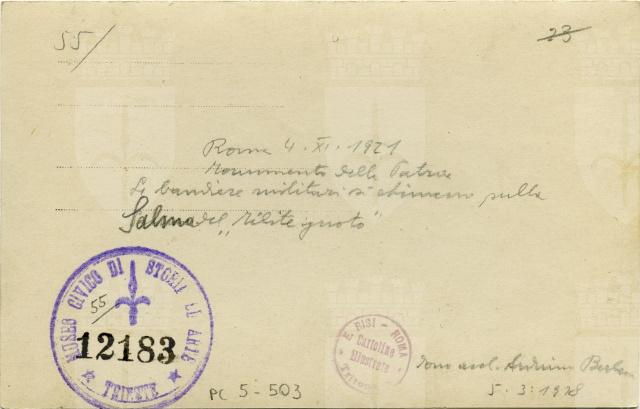 55/
23
Roma 4. XI. 1921
Monumento della Patria
Le bandiere militari si chinano sulla
Salma del "Milite ignoto"
MUSEO CIVICO DI STORIA ED ARTE
55/
12183
★ TRIESTE ★
E. RISI - ROMA
Cartoline
Illustrate
PC 5-503
Dono arch. Arduino Berlam
5.3.1928